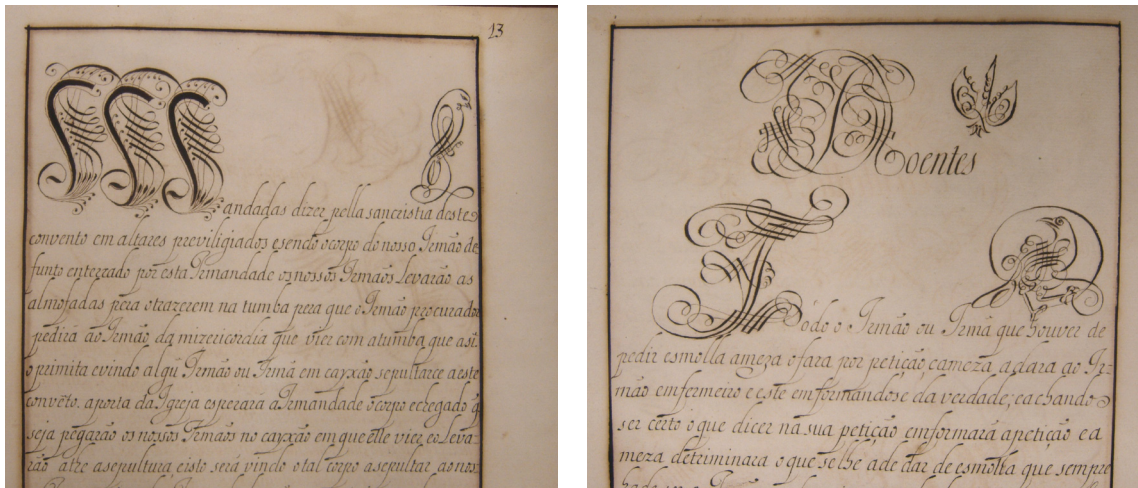 13
Mandadas dizer pella sancristia deste
convento em altares previligiados esendo ocorpo do nosso Irmão de
funto enterrado por esta Irmandade os nossos Irmaõs Levarão as
almofadas pera otrazerem na tumba pera que o Irmão procurador
pedirá ao Irmão da mizericordia que vier com atumba que asi
o primita evindo algũ Irmão ou Irmã em cayxão sepultarce aeste
convẽto. aporta da Igreja esperará aIrmandade ocorpo echegado q̃
seja pegarão os nossos Irmaõs no cayxão em que elle vier eo Leva-
rão atre asepultura eisto será vindo otal corpo asepultar, ao nos
Doentes
Todo o Irmão ou Irmã que houver de
pedir esmolla ameza ofara por petição cameza, adara ao Ir-
mão emfermeiro e este emformandose da verdade, eachando
ser certo o que dicer na sua petição emformará apetição e a
meza detriminara o que se lhe ade dar de esmolla que sempre